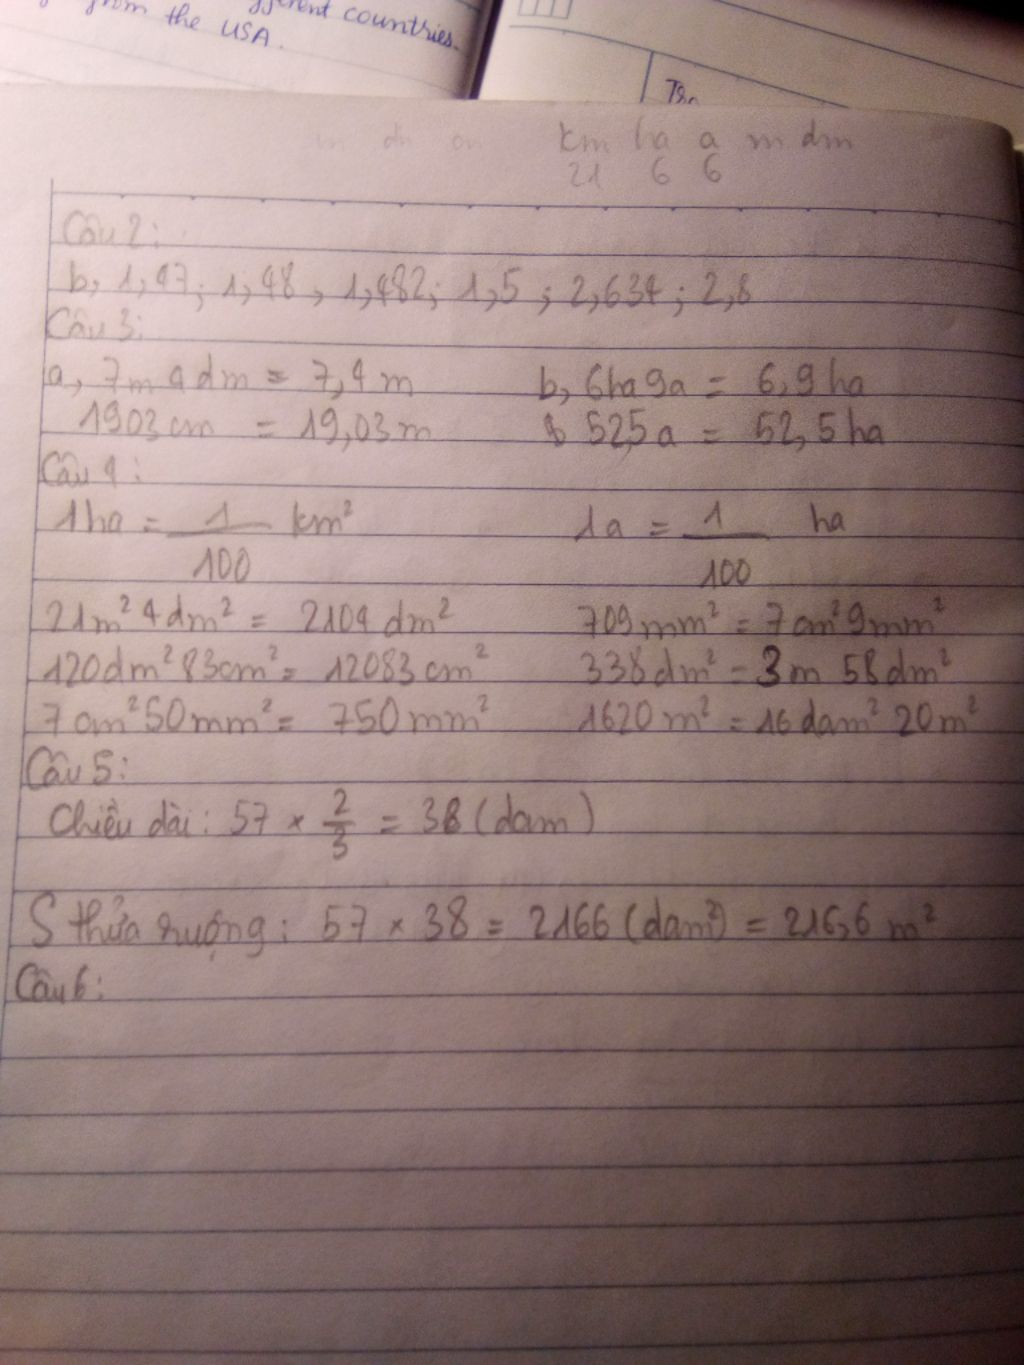 different countries.
from the USA.
km ha a m dm
21 6 6
Câu 2:
b, 1,47; 1,48, 1,482; 1,5; 2,634; 2,8
Câu 3:
a, 7m 4dm = 7,4 m b, 6ha9a = 6,9 ha
1903 cm = 19,03 m 525a = 52,5 ha
Câu 4:
1ha = 1/100 km² 1a = 1/100 ha
21m² 4dm² = 2104 dm² 709mm² = 7cm² 9mm²
120dm² 83cm² = 12083 cm² 338dm² = 3m 58dm²
7cm² 50mm² = 750mm² 1620m² = 16dam² 20m²
Câu 5:
Chiều dài: 57 × 2/3 = 38 (dam)
S thửa ruộng: 57 × 38 = 2166 (dam²) = 216,6 m²
Câu 6: